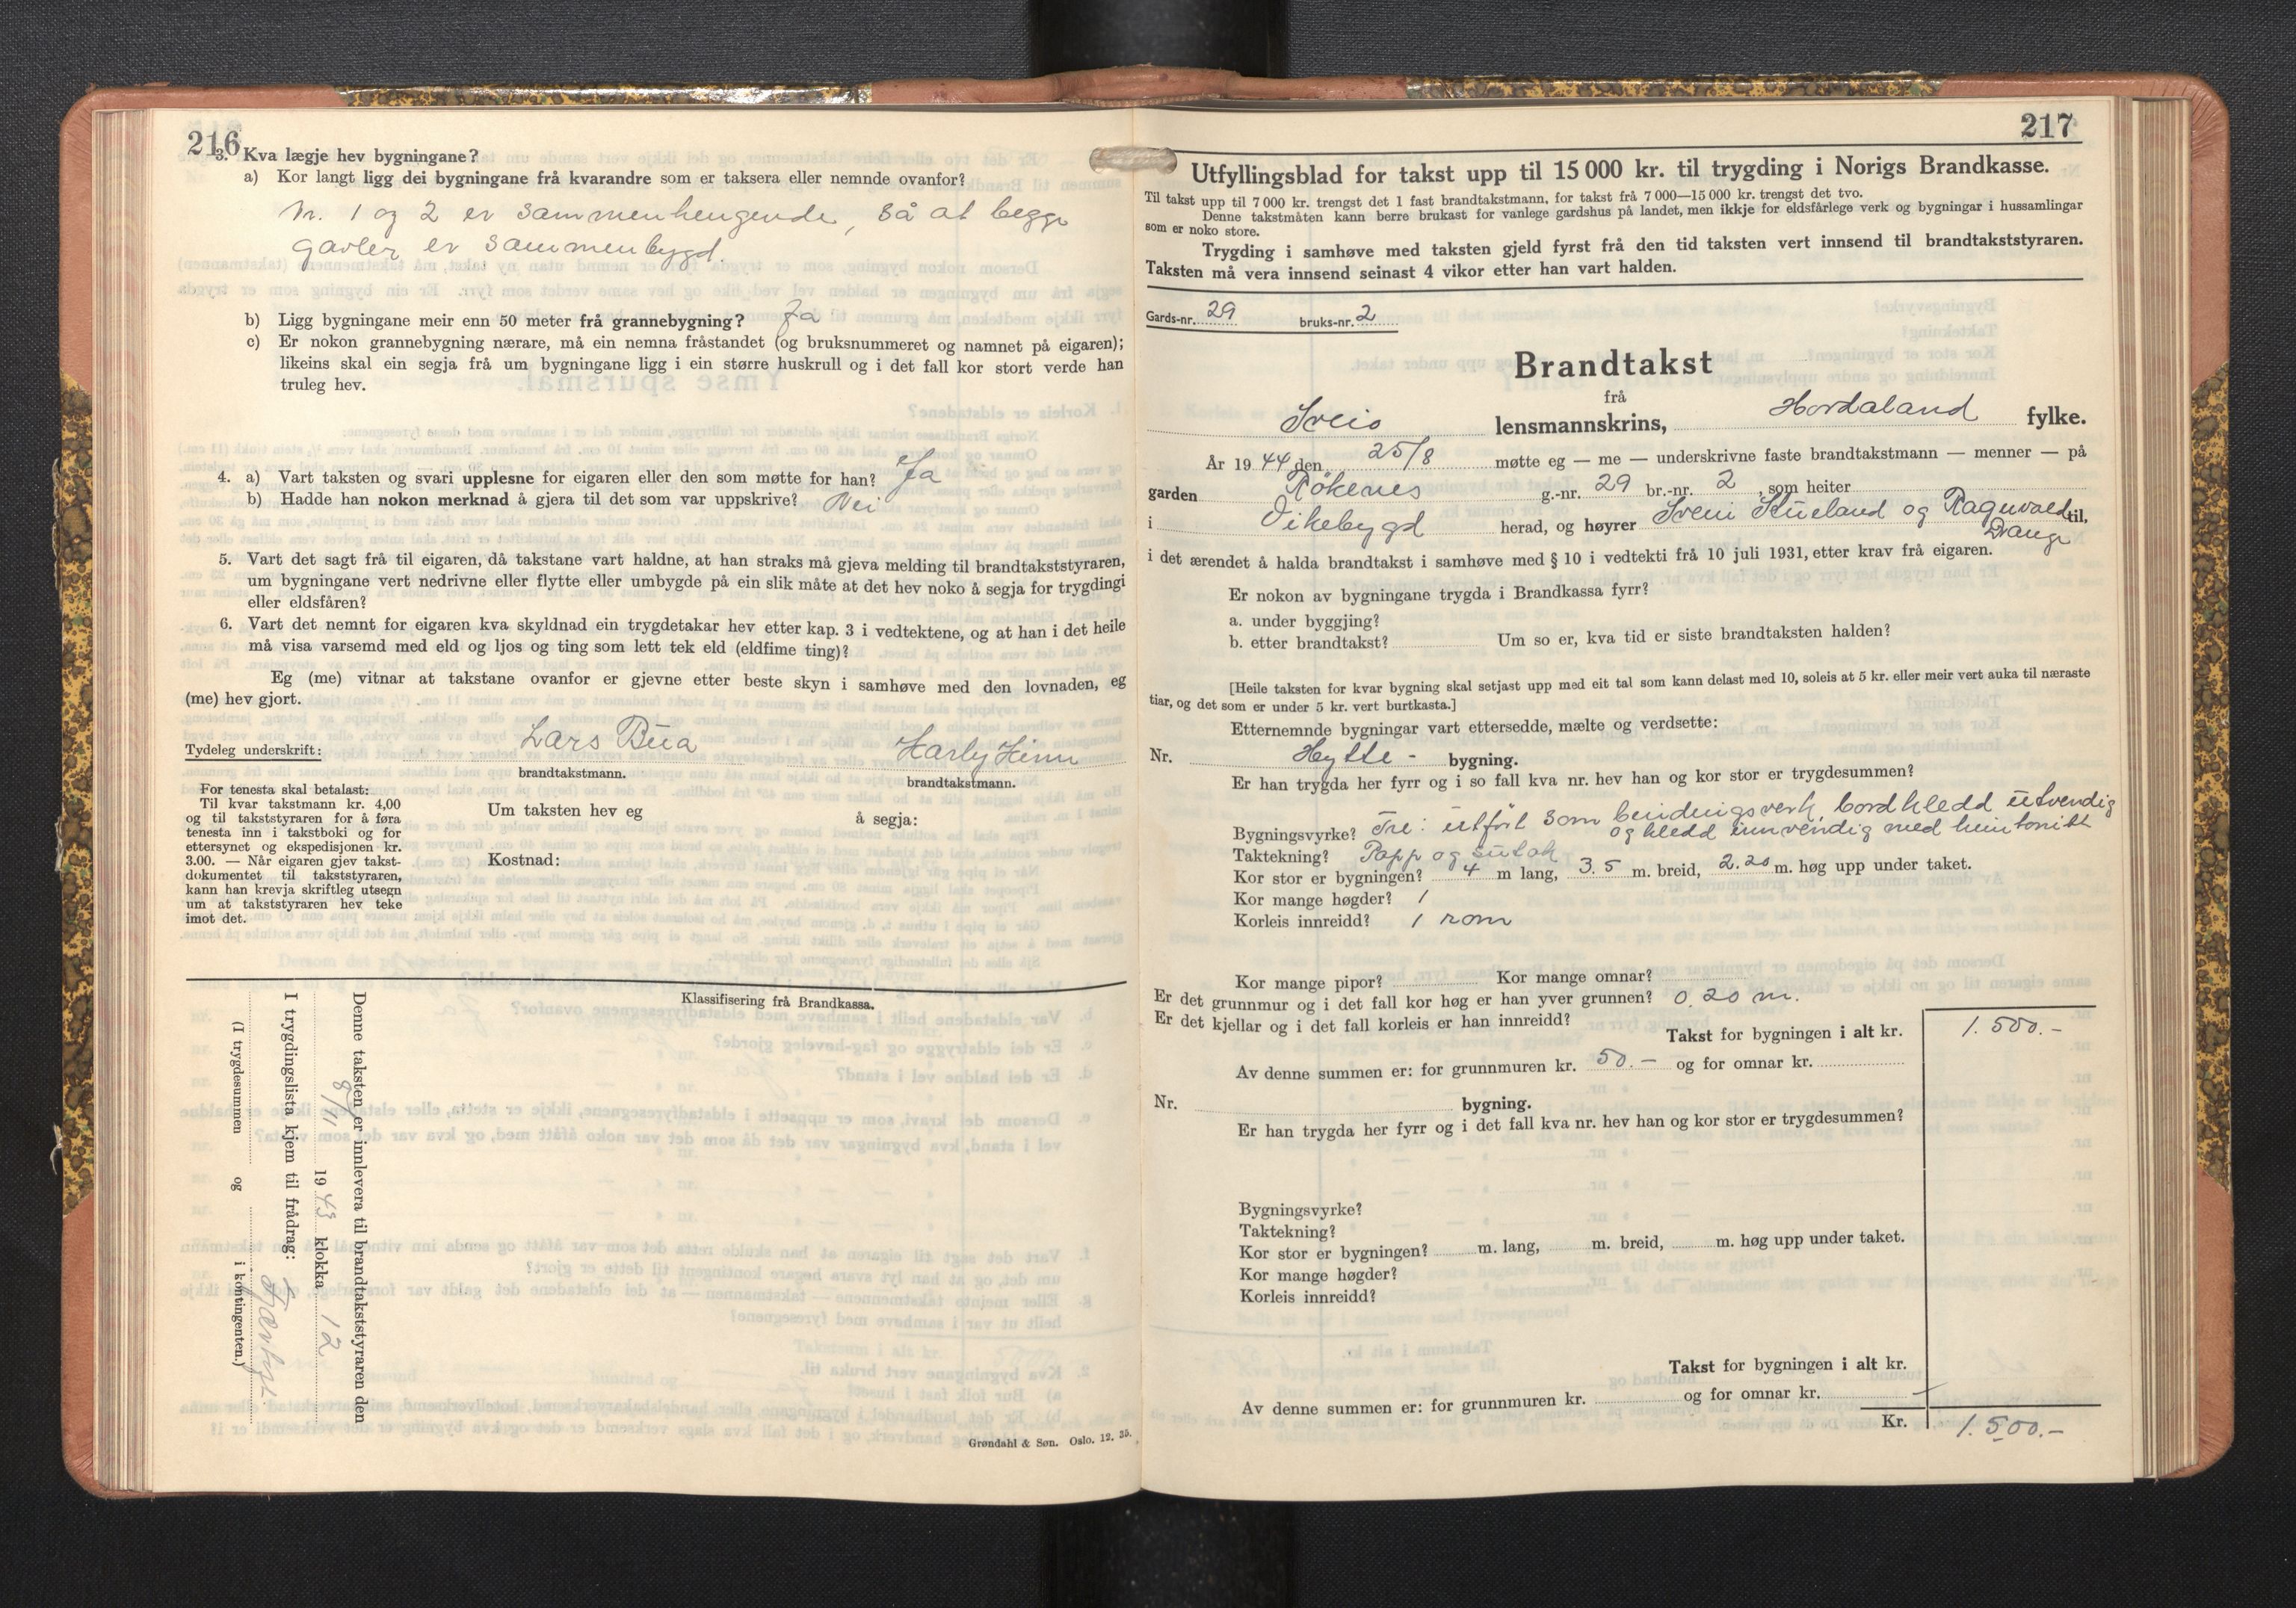 216
3. Kva lægje hev bygningane?
a) Kor langt ligg dei bygningane frå kvarandre som er taksera eller nemnde ovanfor?
Nr. 1 og 2 er sammenhengende, så at begge
gavler er sammenbygd.
b) Ligg bygningane meir enn 50 meter frå grannebygning? Ja
c) Er nokon grannebygning nærare, må ein nemna fråstandet (og bruksnummeret og namnet på eigaren);
likeins skal ein segja frå um bygningane ligg i ein større huskrull og i det fall kor stort verde han
truleg hev.
4. a) Vart taksten og svari upplesne for eigaren eller den som møtte for han? Ja
b) Hadde han nokon merknad å gjera til det som var uppskrive? Nei
5. Vart det sagt frå til eigaren, då takstane vart haldne, at han straks må gjeva melding til brandtakststyraren,
um bygningane vert nedrivne eller flytte eller umbygde på ein slik måte at det hev noko å segja for trygdingi
eller eldsfåren?
6. Vart det nemnt for eigaren kva skyldnad ein trygdetakar hev etter kap. 3 i vedtektene, og at han i det heile
må visa varsemd med eld og ljos og ting som lett tek eld (eldfime ting)?
Eg (me) vitnar at takstane ovanfor er gjevne etter beste skyn i samhøve med den lovnaden, eg
(me) hev gjort.
Tydeleg underskrift: Lars Bua
brandtakstmann. brandtakstmann.
For tenesta skal betalast:
Til kvar takstmann kr. 4,00
og til takststyraren for å føra
tenesta inn i takstboki og for
ettersynet og ekspedisjonen kr.
3.00. — Når eigaren gjev takst-
dokumentet til takststyraren,
kann han krevja skriftleg utsegn
um at takststyraren hev teke
imot det.
Um taksten hev eg å segja:
Kostnad:
Klassifisering frå Brandkassa.
Denne taksten er innlevera til brandtakststyraren den
8/11 1943 klokka 12
I trygdingslista kjem til frådrag:
(I trygdesummen og i kontingenten.)
Grøndahl & Søn. Oslo. 12. 35.
217
Utfyllingsblad for takst upp til 15 000 kr. til trygding i Norigs Brandkasse.
Til takst upp til 7 000 kr. trengst det 1 fast brandtakstmann, for takst frå 7 000—15 000 kr. trengst det tvo.
Denne takstmåten kann berre brukast for vanlege gardshus på landet, men ikkje for eldsfårlege verk og bygningar i hussamlingar
som er noko store.
Trygding i samhøve med taksten gjeld fyrst frå den tid taksten vert innsend til brandtakststyraren.
Taksten må vera innsend seinast 4 vikor etter han vart halden.
Gards-nr. 29 bruks-nr. 2
Brandtakst
frå
Sveio lensmannskrins, Hordaland fylke.
År 1944 den 25/8 møtte eg — me — underskrivne faste brandtakstmann — menner — på
garden Røkenes g.-nr. 29 br.-nr. 2, som heiter
i Vikebygd herad, og høyrer Svein Stueland og Ragnvald til,
Drange
i det ærendet å halda brandtakst i samhøve med § 10 i vedtekti frå 10 juli 1931, etter krav frå eigaren.
Er nokon av bygningane trygda i Brandkassa fyrr?
a. under byggjing?
b. etter brandtakst? Um so er, kva tid er siste brandtaksten halden?
[Heile taksten for kvar bygning skal setjast upp med eit tal som kann delast med 10, soleis at 5 kr. eller meir vert auka til næraste
tiar, og det som er under 5 kr. vert burtkasta.]
Etternemnde bygningar vart ettersedde, mælte og verdsette:
Nr. Hytte - bygning.
Er han trygda her fyrr og i so fall kva nr. hev han og kor stor er trygdesummen?
Bygningsvyrke? Tre: utført som bindingsverk, bordkledd utvendig
og kledd innvendig med huntonitt
Taktekning? Papp og sutak
Kor stor er bygningen? 4 m lang, 3.5 m. breid, 2.20 m. høg upp under taket.
Kor mange høgder? 1
Korleis innreidd? 1 rom
Kor mange pipor? Kor mange omnar?
Er det grunnmur og i det fall kor høg er han yver grunnen? 0,20 m.
Er det kjellar og i det fall korleis er han innreidd?
Takst for bygningen i alt kr. 1.500.-
Av denne summen er: for grunnmuren kr. 50.- og for omnar kr.
Nr. bygning.
Er han trygda her fyrr og i det fall kva nr. hev han og kor stor er trygdesummen?
Bygningsvyrke?
Taktekning?
Kor stor er bygningen? m. lang, m. breid, m. høg upp under taket.
Kor mange høgder?
Korleis innreidd?
Takst for bygningen i alt kr.
Av denne summen er: for grunnmuren kr. og for omnar kr.
Kr. 1.500.-